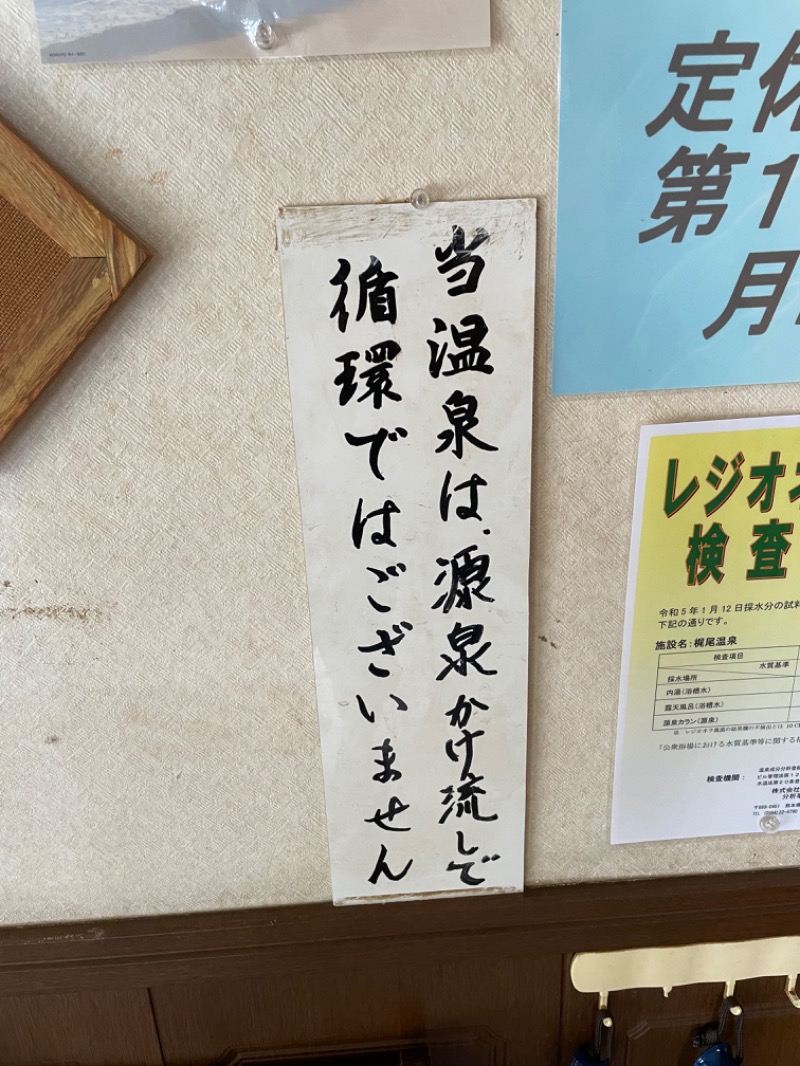 当温泉は、源泉かけ流しで
循環ではございません
定休
第1
月
レジオネ
検査
令和5年1月12日採水分の試料
下記の通りです。
施設名：梶尾温泉
検査項目
水質基準
採水場所
内湯（浴槽水）
露天風呂（浴槽水）
源泉カラン（源泉）
「公衆浴場における水質基準等に関する
検査機関：
株式会社